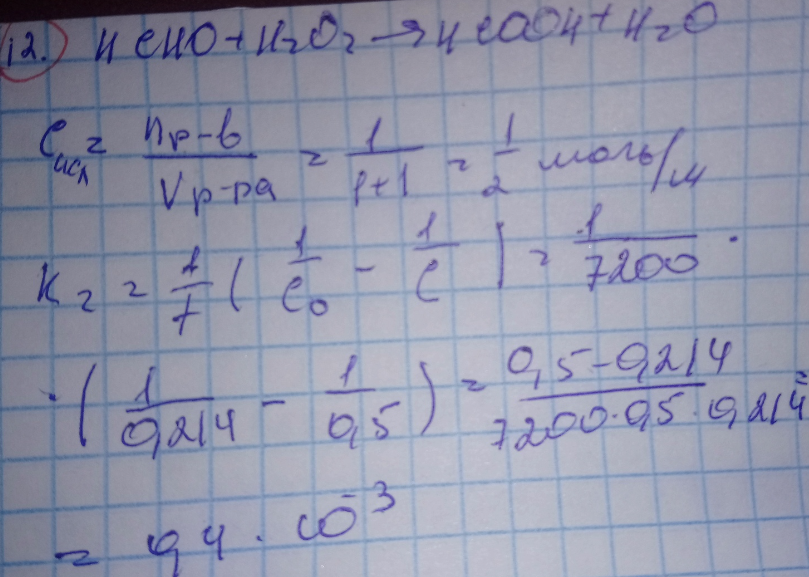 12. HCHO + H₂O₂ → HCOOH + H₂O
C исх = n р-в / V р-ра = 1 / 1+1 = 1/2 моль/л
K₂ = 1/T ( 1/C₀ - 1/C ) = 1/7200 ·
· ( 1/0,214 - 1/0,5 ) = 0,5-0,214 / 7200·0,5·0,214 =
= 0,4 · 10⁻³